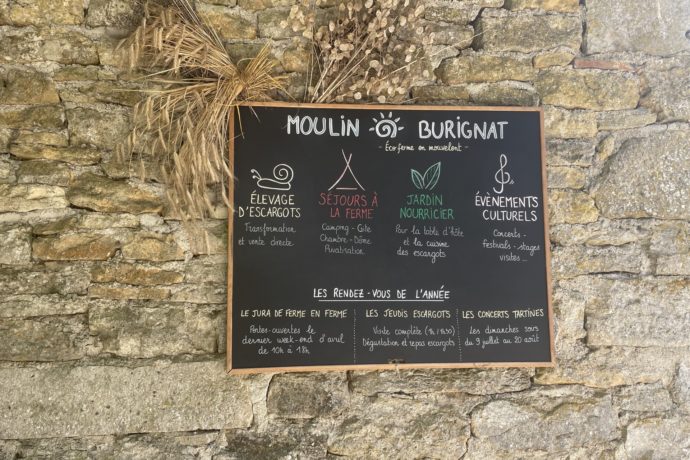 MOULIN BURIGNAT
- Éco ferme en mouvement -
ÉLEVAGE
D'ESCARGOTS
Transformation
et vente directe
SÉJOURS À
LA FERME
Camping - Gîte
Chambre - Dôme
Privatisation
JARDIN
NOURRICIER
Pour la table d'hôte
et la cuisine
des escargots
ÉVÈNEMENTS
CULTURELS
Concerts -
Festivals - stages
visites...
LES RENDEZ-VOUS DE L'ANNÉE
LE JURA DE FERME EN FERME
Portes-ouvertes le
dernier week-end d'avril
de 10h à 18h
LES JEUDIS ESCARGOTS
Visite complète (1h/1h30)
Dégustation et repas escargots
LES CONCERTS TARTINES
Les dimanches soirs
du 9 juillet au 20 août